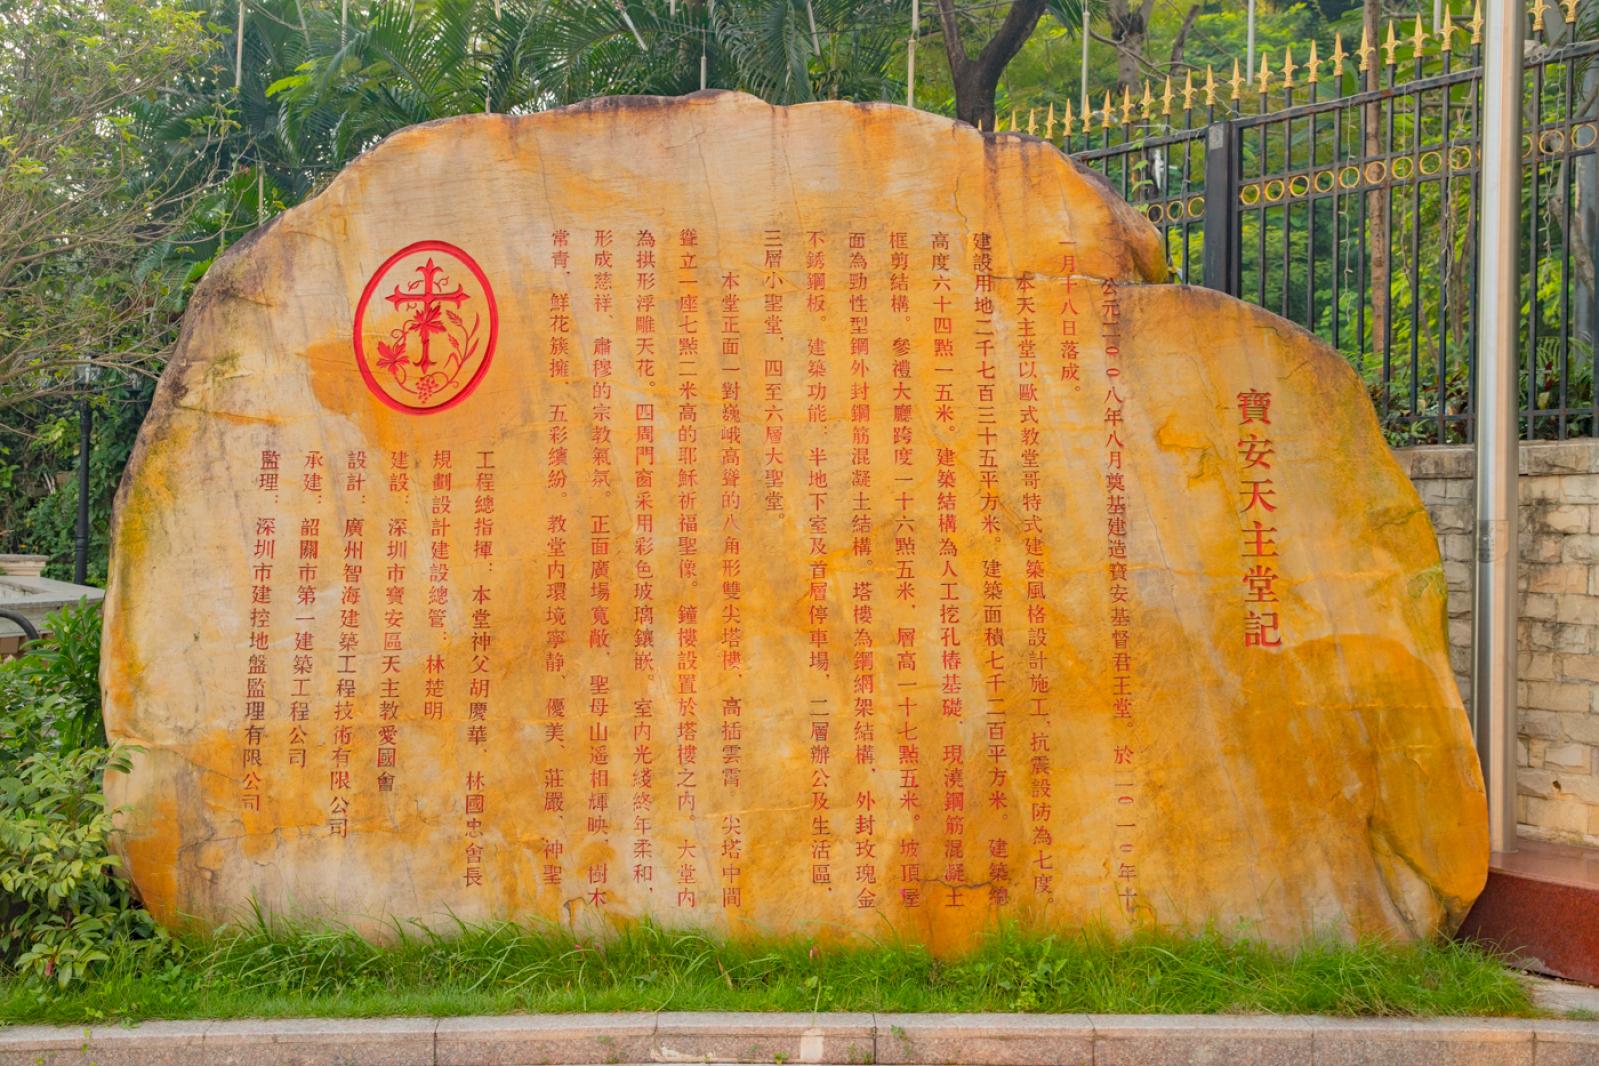 寶安天主堂記
公元二〇〇八年八月奠基建造寶安基督君王堂。於二〇一〇年十
一月十八日落成。
本天主堂以歐式教堂哥特式建築風格設計施工,抗震設防為七度。
建設用地二千七百三十五平方米。建築面積七千二百平方米。建築總
高度六十四點一五米。建築結構為人工挖孔樁基礎、現澆鋼筋混凝土
框剪結構。參禮大廳跨度一十六點五米,層高一十七點五米。坡頂屋
面為勁性型鋼外封鋼筋混凝土結構。塔樓為鋼網架結構,外封玫瑰金
不銹鋼板。建築功能:半地下室及首層停車場,二層辦公及生活區,
三層小聖堂,四至六層大聖堂。
本堂正面一對巍峨高聳的八角形雙尖塔樓,高插雲霄,尖塔中間
聳立一座七點二米高的耶穌祈福聖像。鐘樓設置於塔樓之內。大堂內
為拱形浮雕天花。四周門窗采用彩色玻璃鑲嵌。室內光綫終年柔和,
形成慈祥、肅穆的宗教氣氛。正面廣場寬敞,聖母山遥相輝映,樹木
常青,鮮花簇擁,五彩繽紛。教堂内環境寧静、優美、莊嚴、神聖
工程總指揮:本堂神父胡慶華、林國忠會長
規劃設計建設總管:林楚明
建設:深圳市寶安區天主教愛國會
設計:廣州智海建築工程技術有限公司
承建:韶關市第一建築工程公司
監理:深圳市建控地盤監理有限公司